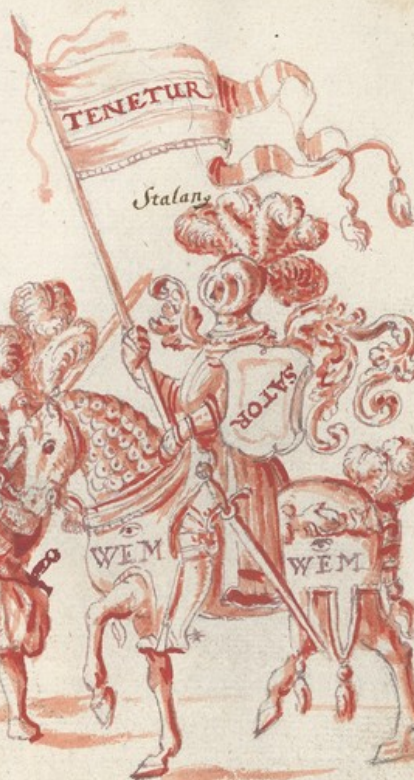 TENETUR
Stalang
SATOR
WEM
WEM